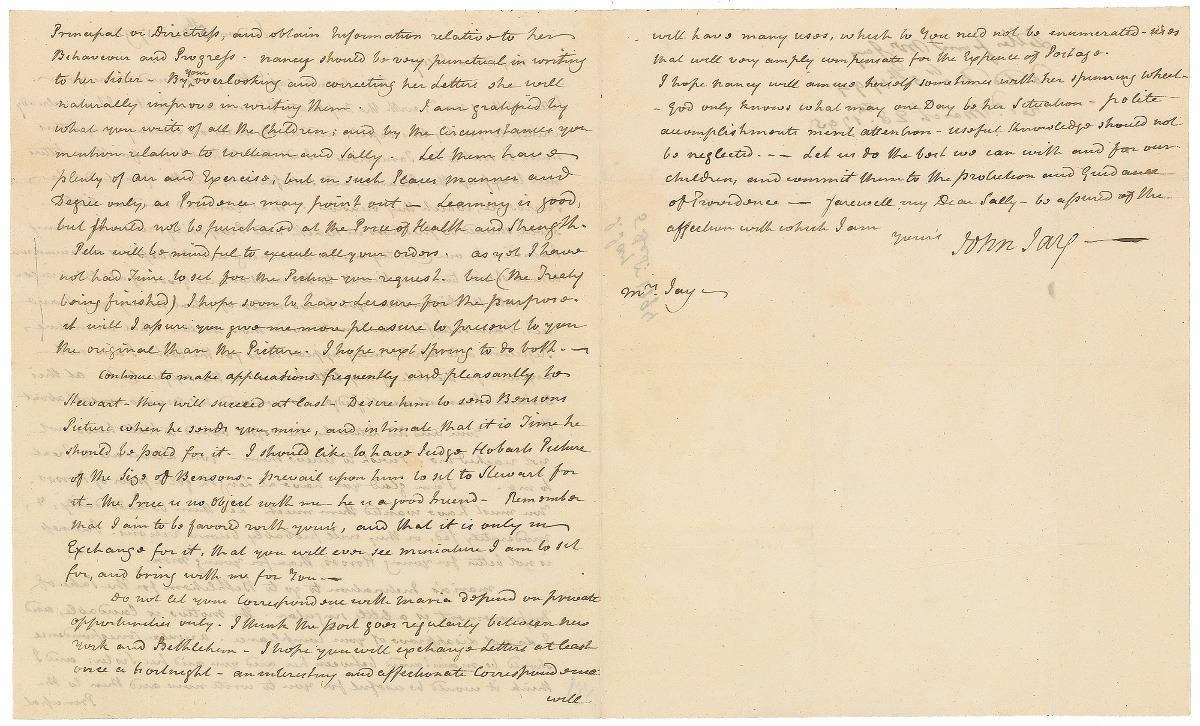 Principal or Directress, and obtain Information relative to her
Behaviour and Progress - nancy should be very punctual in writing
to her Sister - By your overlooking and correcting her Letters she will
naturally improve in writing them. I am gratified by
what you write of all the Children; and by the Circumstances you
mention relative to William and Sally. Let them have
plenty of air and Exercise, but in such Places manner and
Degree only, as Prudence may point out - Learning is good,
but should not be purchased at the Price of Health and Strength -
Peter will be mindful to execute all your orders. as yet I have
not had Time to set for the Picture you request. but (the Treaty
being finished) I hope soon to have Leisure for the purpose.
it will I assure you give me more pleasure to present to you
the original than the Picture. I hope next Spring to do both. -
Continue to make applications frequently and pleasantly to
Stewart - they will succeed at last - Desire him to send Bensons
Picture when he sends you mine, and intimate that it is Time he
should be paid for it. I should like to have Judge Hobarts Picture
of the Size of Bensons - prevail upon him to set to Stewart for
it - the Price is no Object with me - he is a good Friend - Remember
that I am to be favored with yours, and that it is only in
Exchange for it, that you will ever see miniature I am to set
for, and bring with me for You -
Do not let your Correspondence with Maria depend on private
opportunities only. I think the post goes regularly between new
York and Bethlehem - I hope you will exchange Letters at least
once a Fortnight - an interesting and affectionate Correspondence
will
will have many uses, which to You need not be enumerated - uses
that will very amply compensate for the Expence of Postage.
I hope nancy will amuse herself sometimes with her spinning wheel -
- God only knows what may one Day be her Situation - polite
accomplishments merit attention - useful knowledge should not
be neglected. - - Let us do the best we can with and for our
children, and commit them to the protection and Guidance
of Providence - farewell my Dear Sally - be assured of the
affection with which I am
yours John Jay -
Mrs. Jay -